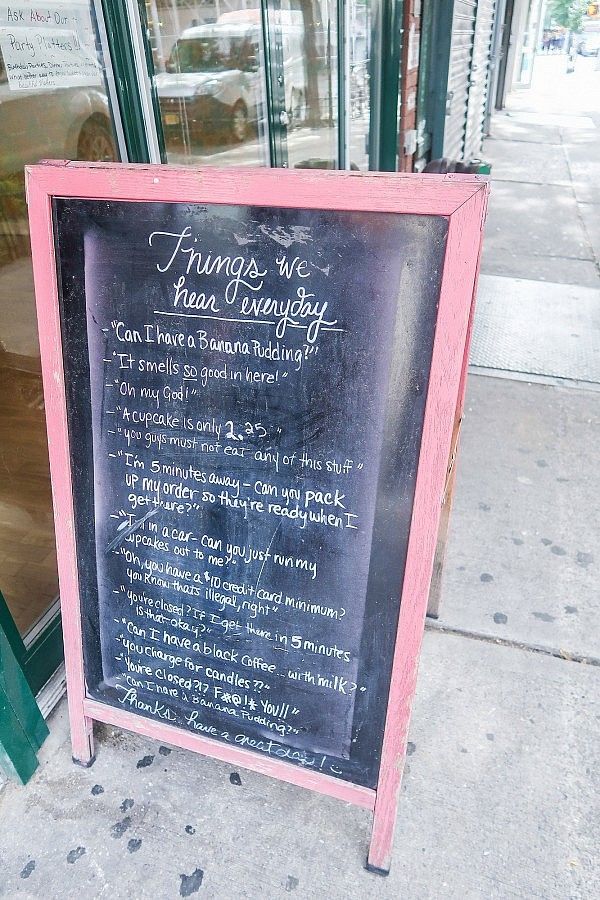 Ask About Our
Party Platters!!
Things we
hear everyday
- "Can I have a Banana Pudding?"
- "It smells so good in here!"
- "Oh my God!"
- "A cupcake is only 2.25."
- "you guys must not eat any of this stuff"
- "I'm 5 minutes away - can you pack
up my order so they're ready when I
get there?"
- "I'm in a car - can you just run my
cupcakes out to me?"
- "Oh, you have a $10 credit card minimum?
you know thats illegal, right"
- "you're closed? If I get there in 5 minutes
is that okay?"
- "Can I have a black coffee... with milk?"
- "you charge for candles??"
- "You're closed?!? F*@!* YOU!!"
- "Can I have a Banana Pudding?"
Thanks, have a great day!